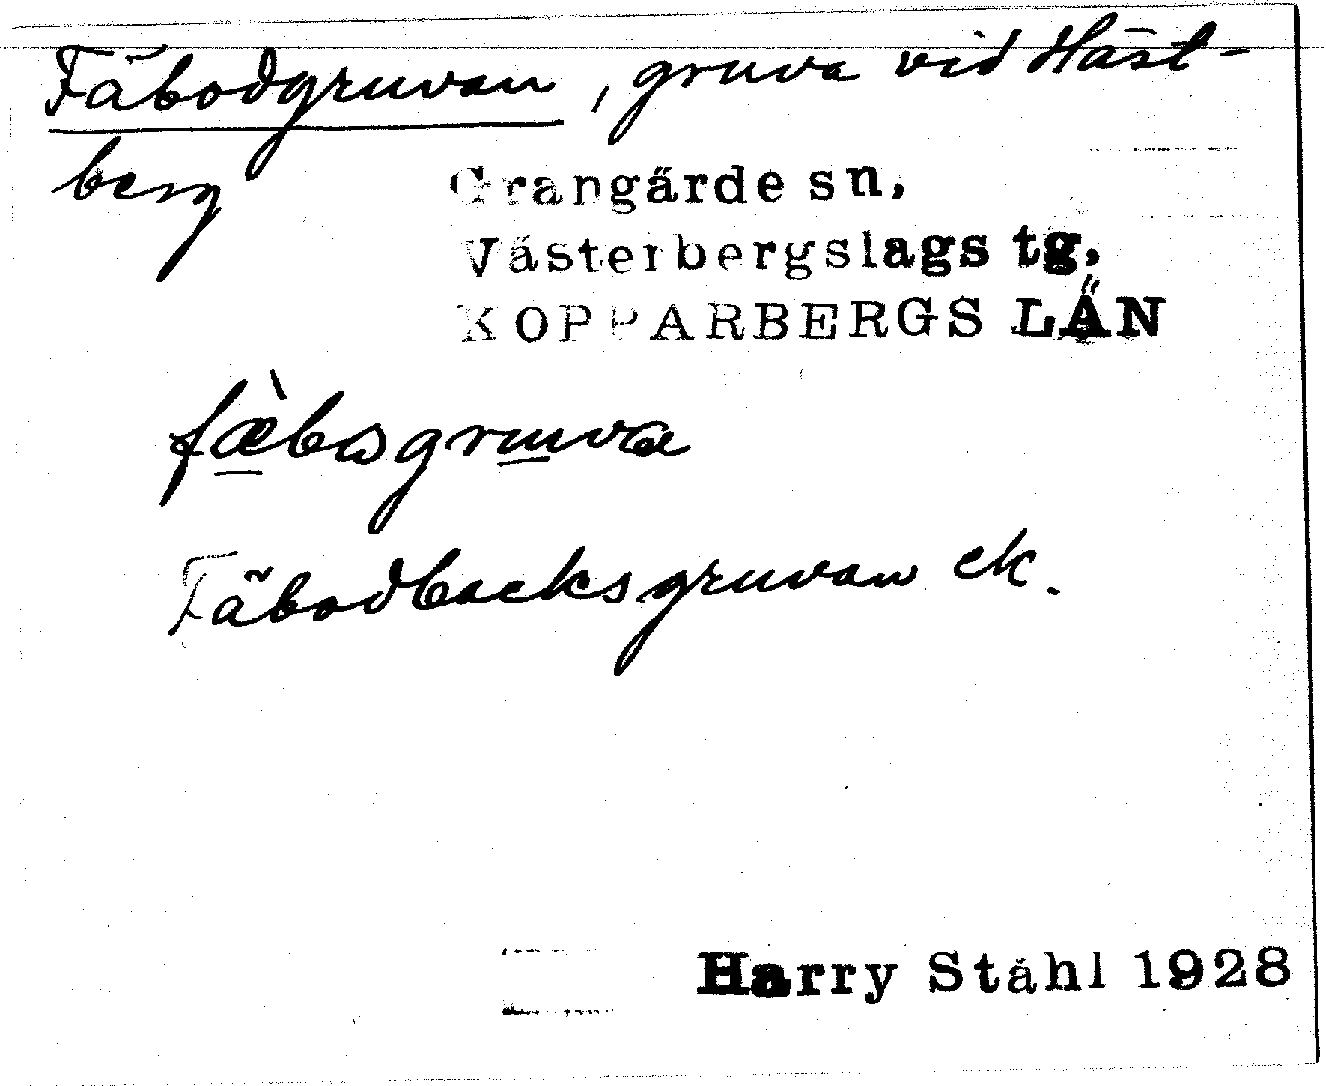 Fäbodgruvan, gruva vid Häst-
berg
Grangärde sn.
Västerbergslags tg.
KOPPARBERGS LÄN
fæ̀bωsgruva
Fäbodbacksgruvan ek.
Harry Ståhl 1928